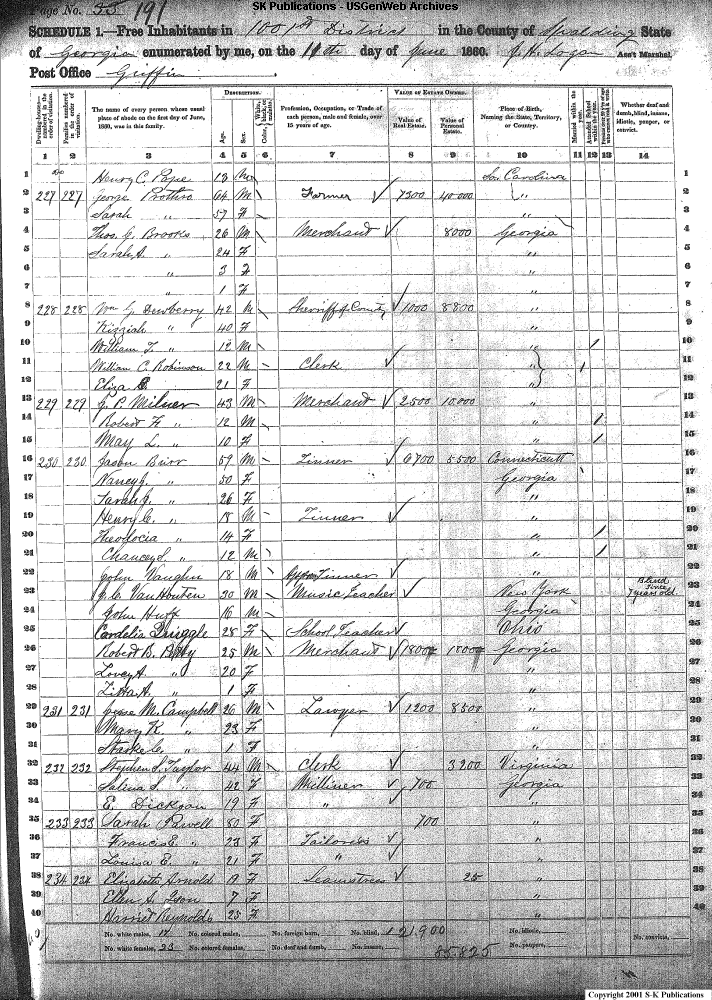 SK Publications - USGenWeb Archives
Page No. 55 191
SCHEDULE 1.—Free Inhabitants in 1001st District in the County of Spalding State
of Georgia enumerated by me, on the 11th day of June 1860. J. H. Logan Ass't Marshal.
Post Office Griffin
DESCRIPTION. VALUE OF ESTATE OWNED.
Dwelling-houses—numbered in the order of visitation. Families numbered in the order of visitation. The name of every person whose usual place of abode on the first day of June, 1860, was in this family. Age. Sex. Color, White, black, or mulatto. Profession, Occupation, or Trade of each person, male and female, over 15 years of age. Value of Real Estate. Value of Personal Estate. Place of Birth, Naming the State, Territory, or Country. Married within the year. Attended School within the year. Whether deaf and dumb, blind, insane, idiotic, pauper, or convict.
1 2 3 4 5 6 7 8 9 10 11 12 13 14
1 Henry C. Pope 13 M So. Carolina 1
2 227 227 George Prothro 64 M Farmer 7300 40.000 " 2
3 Sarah " 57 F " 3
4 Thos. J. Brooks 26 M Merchant 8000 Georgia 4
5 Sarah A. " 24 F " 5
6 " 3 F " 6
7 " 1 F " 7
8 228 228 Wm G. Dewberry 42 M Sherriff of County 1000 8800 " 8
9 Kizziah " 40 F " 9
10 William T. " 12 M " / 10
11 William C. Robinson 22 M Clerk " / 11
12 Eliza 21 F " 12
13 229 229 J. P. Milner 43 M Merchant 2500 10.000 " 13
14 Robert F. " 12 M " / 14
15 May L. " 10 F " / 15
16 230 230 Jason Burr 59 M Tinner 6700 5500 Connecticutt 16
17 Nancy J. " 50 F Georgia 17
18 Sarah J. " 26 F " 18
19 Henry C. " 18 M Tinner " 19
20 Theodocia " 14 F " / 20
21 Chauncey S. " 12 M " / 21
22 John Vaughn 18 M Tinner "
23 J. C. VanHouten 30 M Music Teacher New York Blind since 7 years old 23
24 John Huff 16 M Georgia 24
25 Cordelia 28 F School Teacher Ohio 25
26 Robert B. 25 M Merchant 18000 18000 Georgia 26
27 Lovey A. " 20 F " 27
28 A. " 1 F " 28
29 231 231 Jesse M. Campbell 26 M Lawyer 1200 8500 " 29
30 Mary K. " 23 F " 30
31 Starke C. " 1 F " 31
32 232 232 Stephen S. Taylor 44 M Clerk 3200 Virginia 32
33 Salina S. " 42 F Milliner 700 Georgia 33
34 E. Dickson 19 F " " 34
35 233 233 Sarah Powell 80 F 700 " 35
36 Francis E. " 23 F Tailoress " 36
37 Louisa E. " 21 F " " 37
38 234 234 Elizabeth Arnold 19 F Seamstress 25 " 38
39 Ellen A. Lyon 7 F " 39
40 Harriet Reynolds 23 F " 40
No. white males, 17 No. colored males, No. foreign born, No. blind, 1 21,900 No. idiotic, No. convicts,
No. white females, 23 No. colored females, No. deaf and dumb, No. insane, 85.825 No. paupers,
Copyright 2001 S-K Publications